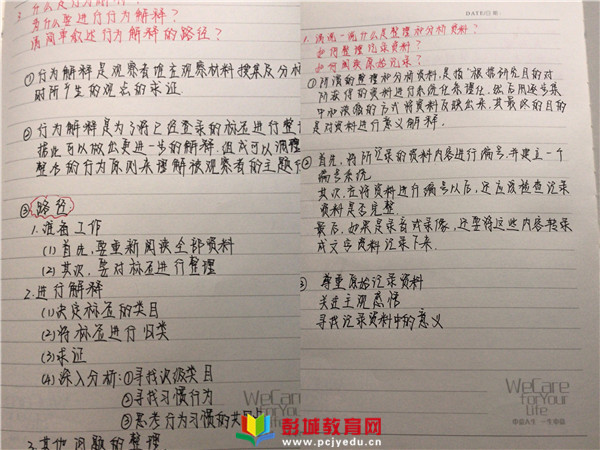 3. 什么是行为解释?
为什么要进行行为解释?
请简单叙述行为解释的路径?
①行为解释是观察者在观察材料搜集及分析
时所产生的观点的求证.
②行为解释是为了将已经登录的标签进行整
据此可以做出更进一步的解释.
整合的行为原则来理解被观察者的主题
③路径
1.准备工作
(1)首先,要重新阅读全部资料
(2)其次,要对标签进行整理
2.进行解释
(1)决定标签的类目
(2)将标签进行归类
(3)求证
(4)深入分析:①寻找次级类目
②寻找习惯行为
③思考行为习惯的共同
3.其他问题的整理
WeCare
forYour
Life
DATE
1.请说一说什么是整理和分析资料?
如何整理记录资料?
如何阅读原始记录?
①所谓的整理和分析资料,是指根据研究目的对
所获得的资料进行系统化条理化,然后用逐步集
中和浓缩的方式将资料反映出来,其最终的目的
是对资料进行意义解释.
②首先,将所记录的资料内容进行编号,并建立一个
编号系统
其次,在将资料进行编号以后,还应该检查记录
资料是否完整.
最后,如果是录音或录像,还要将这些内容转录
成文字资料记录下来.
③ 尊重原始记录资料
关进主观感悟
寻找记录资料中的意义
WeCare
forYour
Life
中益人生 一生中益
彭城教育网
www.pcjyedu.cn